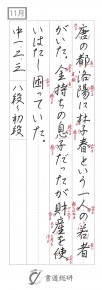 11月
唐の都洛陽に杜子春という一人の若者
がいた。金持ちの息子だったが財産を使
いはたし困っていた。
中一二三 八段〜初段
書道総研